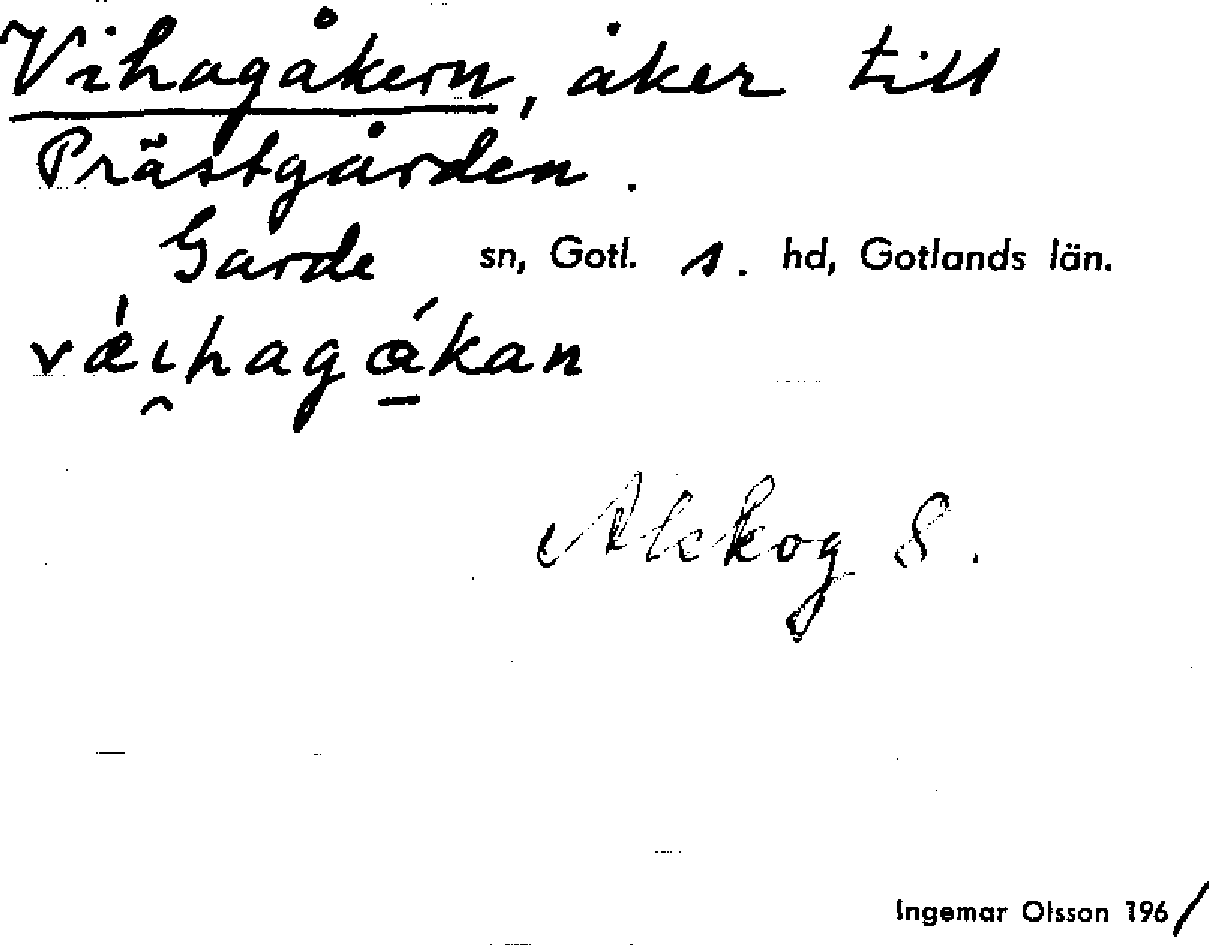 Vihagåkern, åker till
Prästgården.
Garde sn, Gotl. s. hd, Gotlands län.
væ̍ı̯hagá̱kan
Alskog S.
Ingemar Olsson 1961